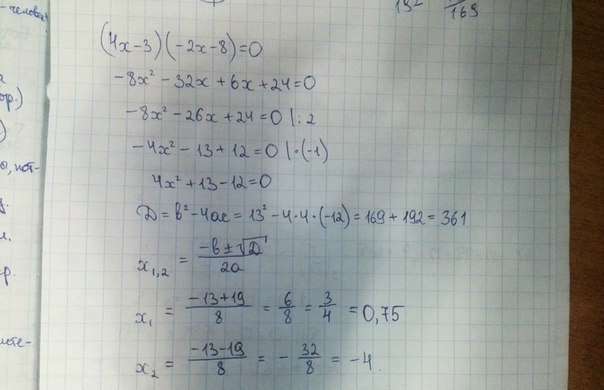 - человек
132 169
(4x-3)(-2x-8)=0
-8x² - 32x + 6x + 24 = 0
ор.)
-8x² - 26x + 24 = 0 |: 2
-4x² - 13 + 12 = 0 |·(-1)
4x² + 13 - 12 = 0
D = b² - 4ac = 13² - 4·4·(-12) = 169 + 192 = 361
x₁,₂ = (-b ± √D) / 2a
x₁ = (-13+19) / 8 = 6/8 = 3/4 = 0,75
x₂ = (-13-19) / 8 = - 32/8 = -4.